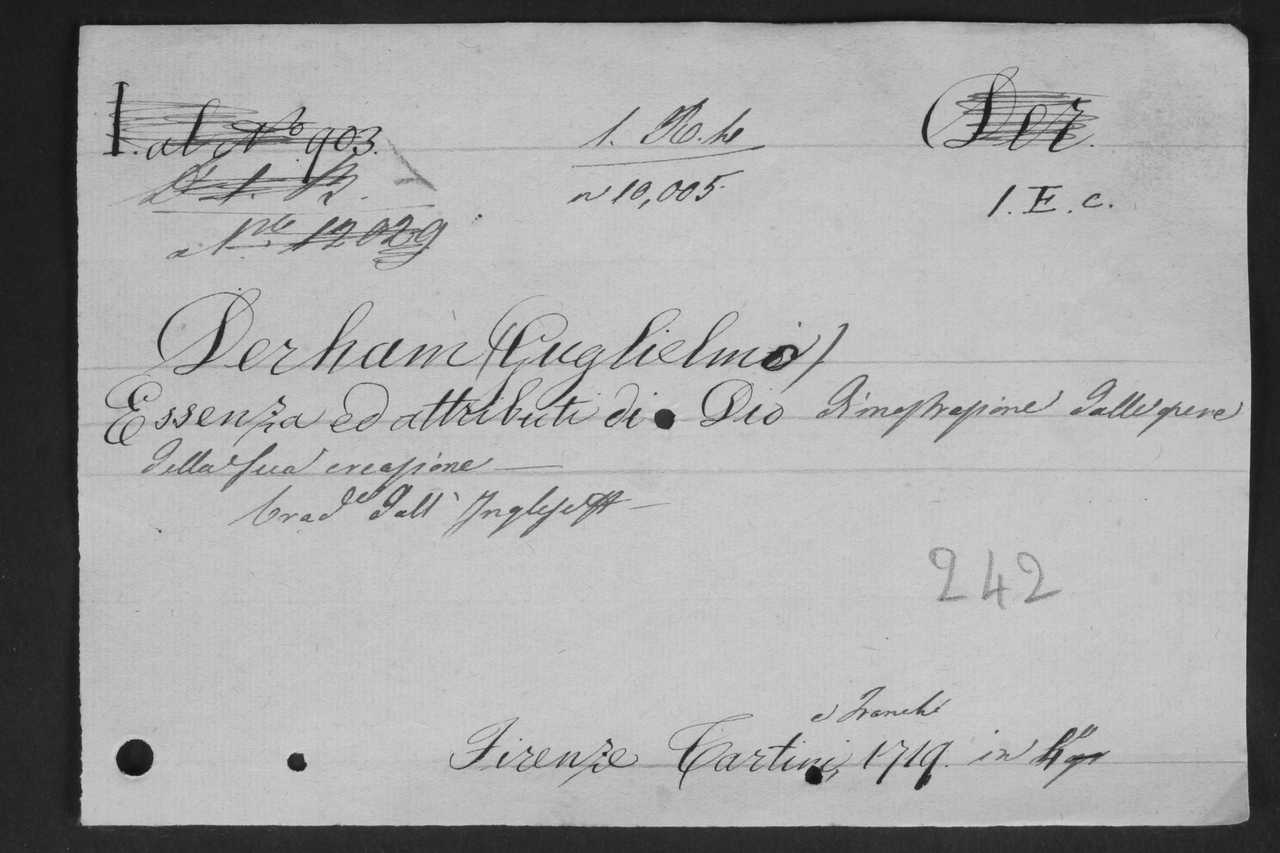 I. al No 903.
1. R. h
Der.
D. 1. B.
n 10,005.
1. E. c.
No 12029
Derham (Guglielmo)
Essenza ed attributi di Dio dimostrazione dalle opere
della sua creazione —
Trad.e dall' Inglese —
242
e Franchi
Firenze Tartini, 1719. in 4o